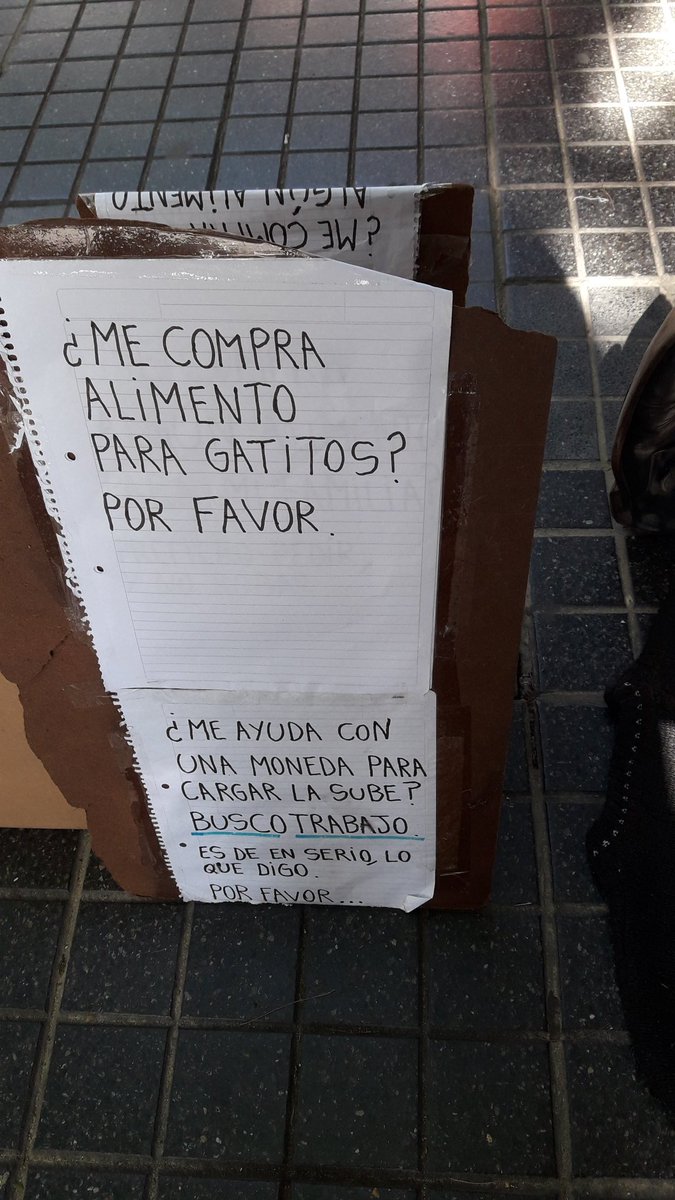 ¿ME COMPRA
ALGÚN ALIMENTO
¿ME COMPRA
ALIMENTO
PARA GATITOS?
POR FAVOR.
¿ME AYUDA CON
UNA MONEDA PARA
CARGAR LA SUBE?
BUSCO TRABAJO.
ES DE EN SERIO, LO
QUE DIGO.
POR FAVOR...